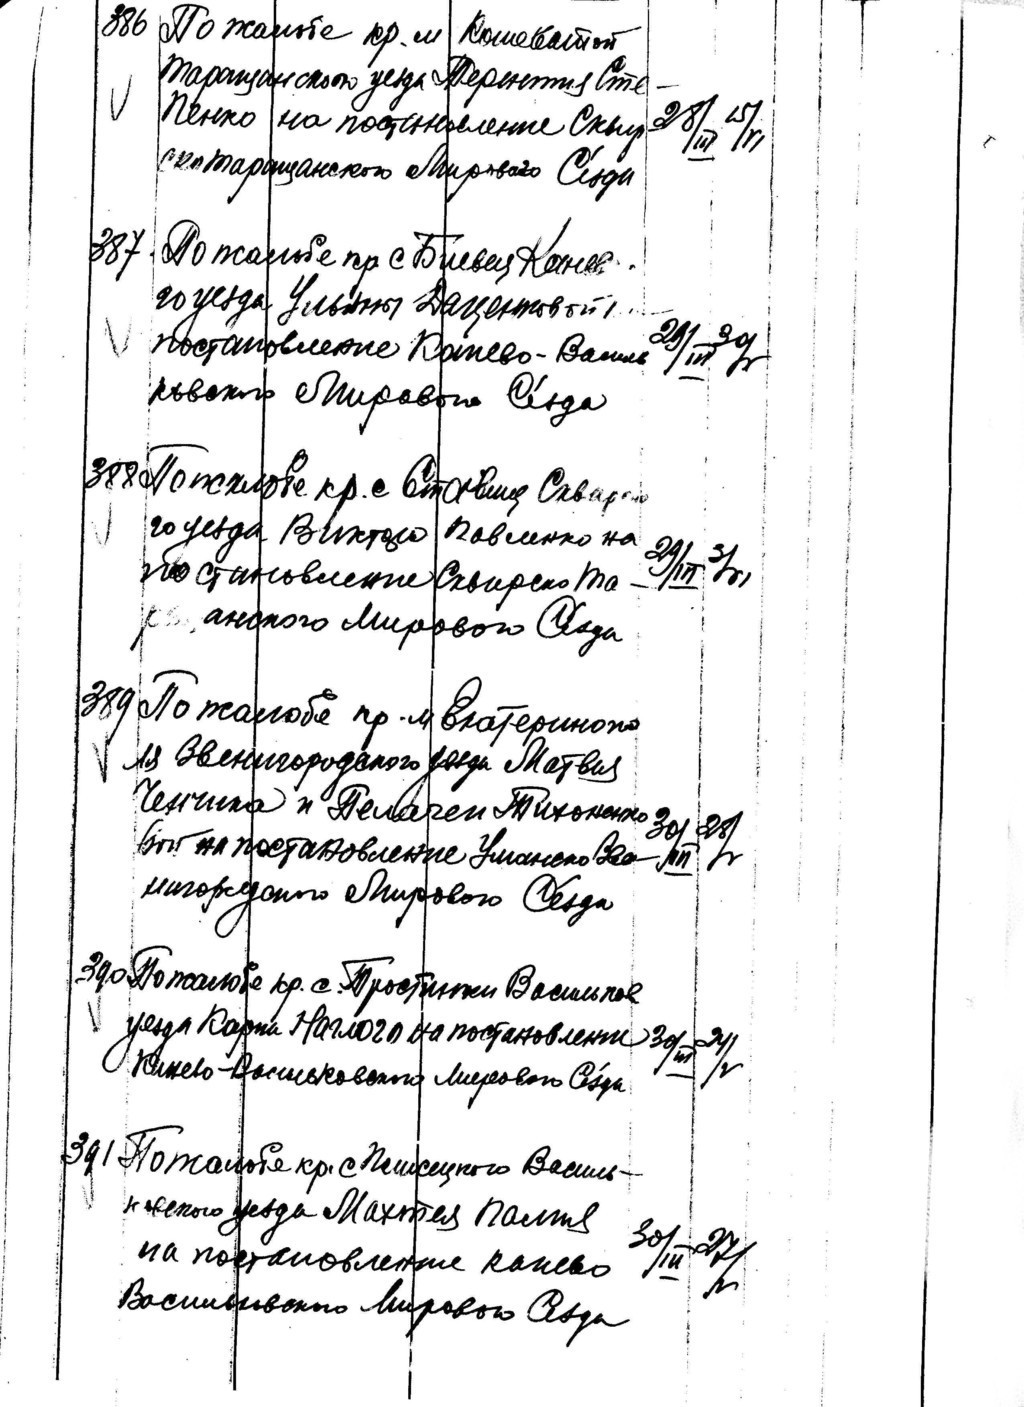 386 По жалобе кр. м Кошеватой
Таращанского уезда Терентия Сте
Пенко на постановление Сквир 28/III 15/VI
ско Таращанского Мирового Съезда
387 По жалобе кр с Канев
го уезда Ульяны Даценковой
постановление Канево-Василь 29/III 30/V
ковского Мирового Съезда
388 По жалобе кр. с Ставищ Сквирско
го уезда Виктора Павленко на
постановление Сквирско Та 29/III 3/VI
ращанского Мирового Съезда
389 По жалобе кр. м Екатеринопо
ля Звенигородского уезда Матвея
Ченчика и Пелагеи Тихоненко
вой на постановление Уманско Зве 30/III 28/V
нигородского Мирового Съезда
390 По жалобе кр. с. Тростинки Васильков
уезда Карпа Наглого на постановлени 30/III 24/V
Канево-Васильковского Мирового Съезда
391 По жалобе кр. с Василь-
ковского уезда
на постановление Канево 30/III 27/V
Васильковского Мирового Съезда